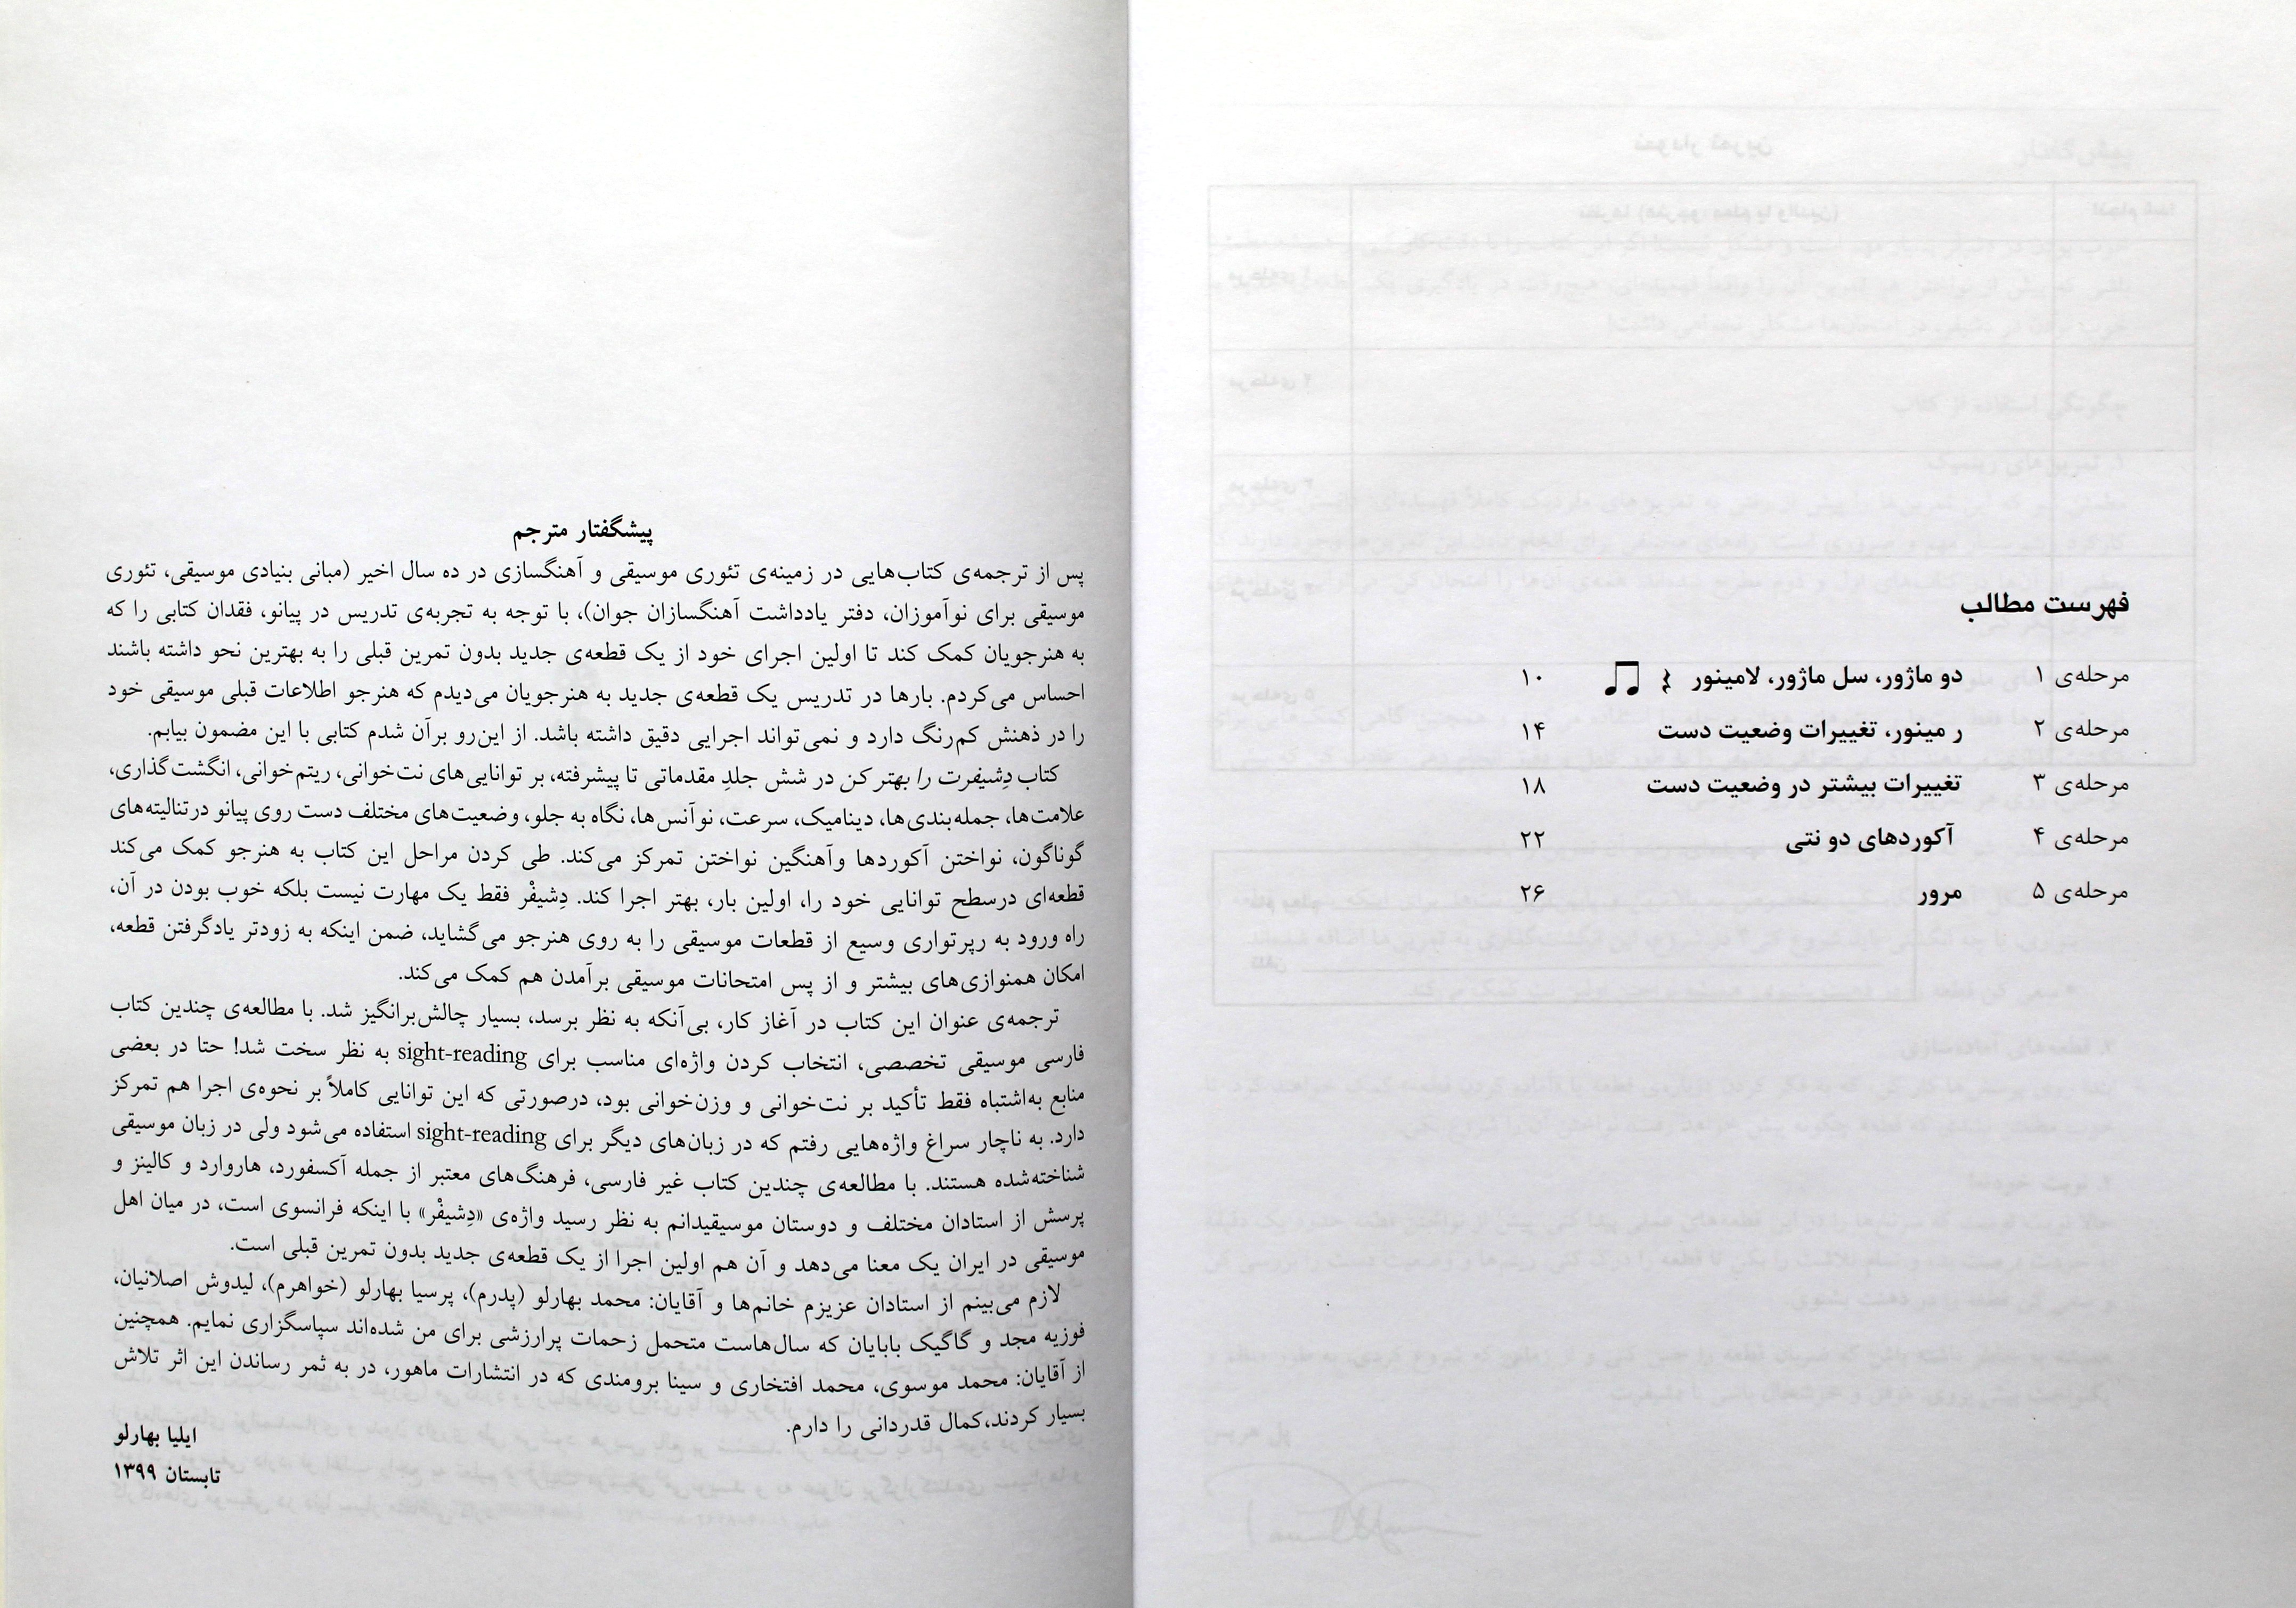 فهرست مطالب
مرحله‌ی ۱ دو ماژور، سل ماژور، لامینور ۱۰
مرحله‌ی ۲ ر مینور، تغییرات وضعیت دست ۱۴
مرحله‌ی ۳ تغییرات بیشتر در وضعیت دست ۱۸
مرحله‌ی ۴ آکوردهای دو نتی ۲۲
مرحله‌ی ۵ مرور ۲۶
پیشگفتار مترجم
پس از ترجمه‌ی کتاب‌هایی در زمینه‌ی تئوری موسیقی و آهنگسازی در ده سال اخیر (مبانی بنیادی موسیقی، تئوری
موسیقی برای نوآموزان، دفتر یادداشت آهنگسازان جوان)، با توجه به تجربه‌ی تدریس در پیانو، فقدان کتابی را که
به هنرجویان کمک کند تا اولین اجرای خود از یک قطعه‌ی جدید بدون تمرین قبلی را به بهترین نحو داشته باشند
احساس می‌کردم. بارها در تدریس یک قطعه‌ی جدید به هنرجویان می‌دیدم که هنرجو اطلاعات قبلی موسیقی خود
را در ذهنش کم‌رنگ دارد و نمی‌تواند اجرایی دقیق داشته باشد. از این‌رو برآن شدم کتابی با این مضمون بیابم.
کتاب دِشیفرت را بهتر کن در شش جلدِ مقدماتی تا پیشرفته، بر توانایی‌های نت‌خوانی، ریتم‌خوانی، انگشت‌گذاری،
علامت‌ها، جمله‌بندی‌ها، دینامیک، سرعت، نوآنس‌ها، نگاه به جلو، وضعیت‌های مختلف دست روی پیانو درتنالیته‌های
گوناگون، نواختن آکوردها وآهنگین نواختن تمرکز می‌کند. طی کردن مراحل این کتاب به هنرجو کمک می‌کند
قطعه‌ای درسطح توانایی خود را، اولین بار، بهتر اجرا کند. دِشیفْر فقط یک مهارت نیست بلکه خوب بودن در آن،
راه ورود به رپرتواری وسیع از قطعات موسیقی را به روی هنرجو می‌گشاید، ضمن اینکه به زودتر یادگرفتن قطعه،
امکان همنوازی‌های بیشتر و از پس امتحانات موسیقی برآمدن هم کمک می‌کند.
ترجمه‌ی عنوان این کتاب در آغاز کار، بی‌آنکه به نظر برسد، بسیار چالش‌برانگیز شد. با مطالعه‌ی چندین کتاب
فارسی موسیقی تخصصی، انتخاب کردن واژه‌ای مناسب برای sight-reading به نظر سخت شد! حتا در بعضی
منابع به‌اشتباه فقط تأکید بر نت‌خوانی و وزن‌خوانی بود، درصورتی که این توانایی کاملاً بر نحوه‌ی اجرا هم تمرکز
دارد. به ناچار سراغ واژه‌هایی رفتم که در زبان‌های دیگر برای sight-reading استفاده می‌شود ولی در زبان موسیقی
شناخته‌شده هستند. با مطالعه‌ی چندین کتاب غیر فارسی، فرهنگ‌های معتبر از جمله آکسفورد، هاروارد و کالینز و
پرسش از استادان مختلف و دوستان موسیقیدانم به نظر رسید واژه‌ی «دِشیفْر» با اینکه فرانسوی است، در میان اهل
موسیقی در ایران یک معنا می‌دهد و آن هم اولین اجرا از یک قطعه‌ی جدید بدون تمرین قبلی است.
لازم می‌بینم از استادان عزیزم خانم‌ها و آقایان: محمد بهارلو (پدرم)، پرسیا بهارلو (خواهرم)، لیدوش اصلانیان،
فوزیه مجد و گاگیک بابایان که سال‌هاست متحمل زحمات پرارزشی برای من شده‌اند سپاسگزاری نمایم. همچنین
از آقایان: محمد موسوی، محمد افتخاری و سینا برومندی که در انتشارات ماهور، در به ثمر رساندن این اثر تلاش
بسیار کردند،کمال قدردانی را دارم.
ایلیا بهارلو
تابستان ۱۳۹۹